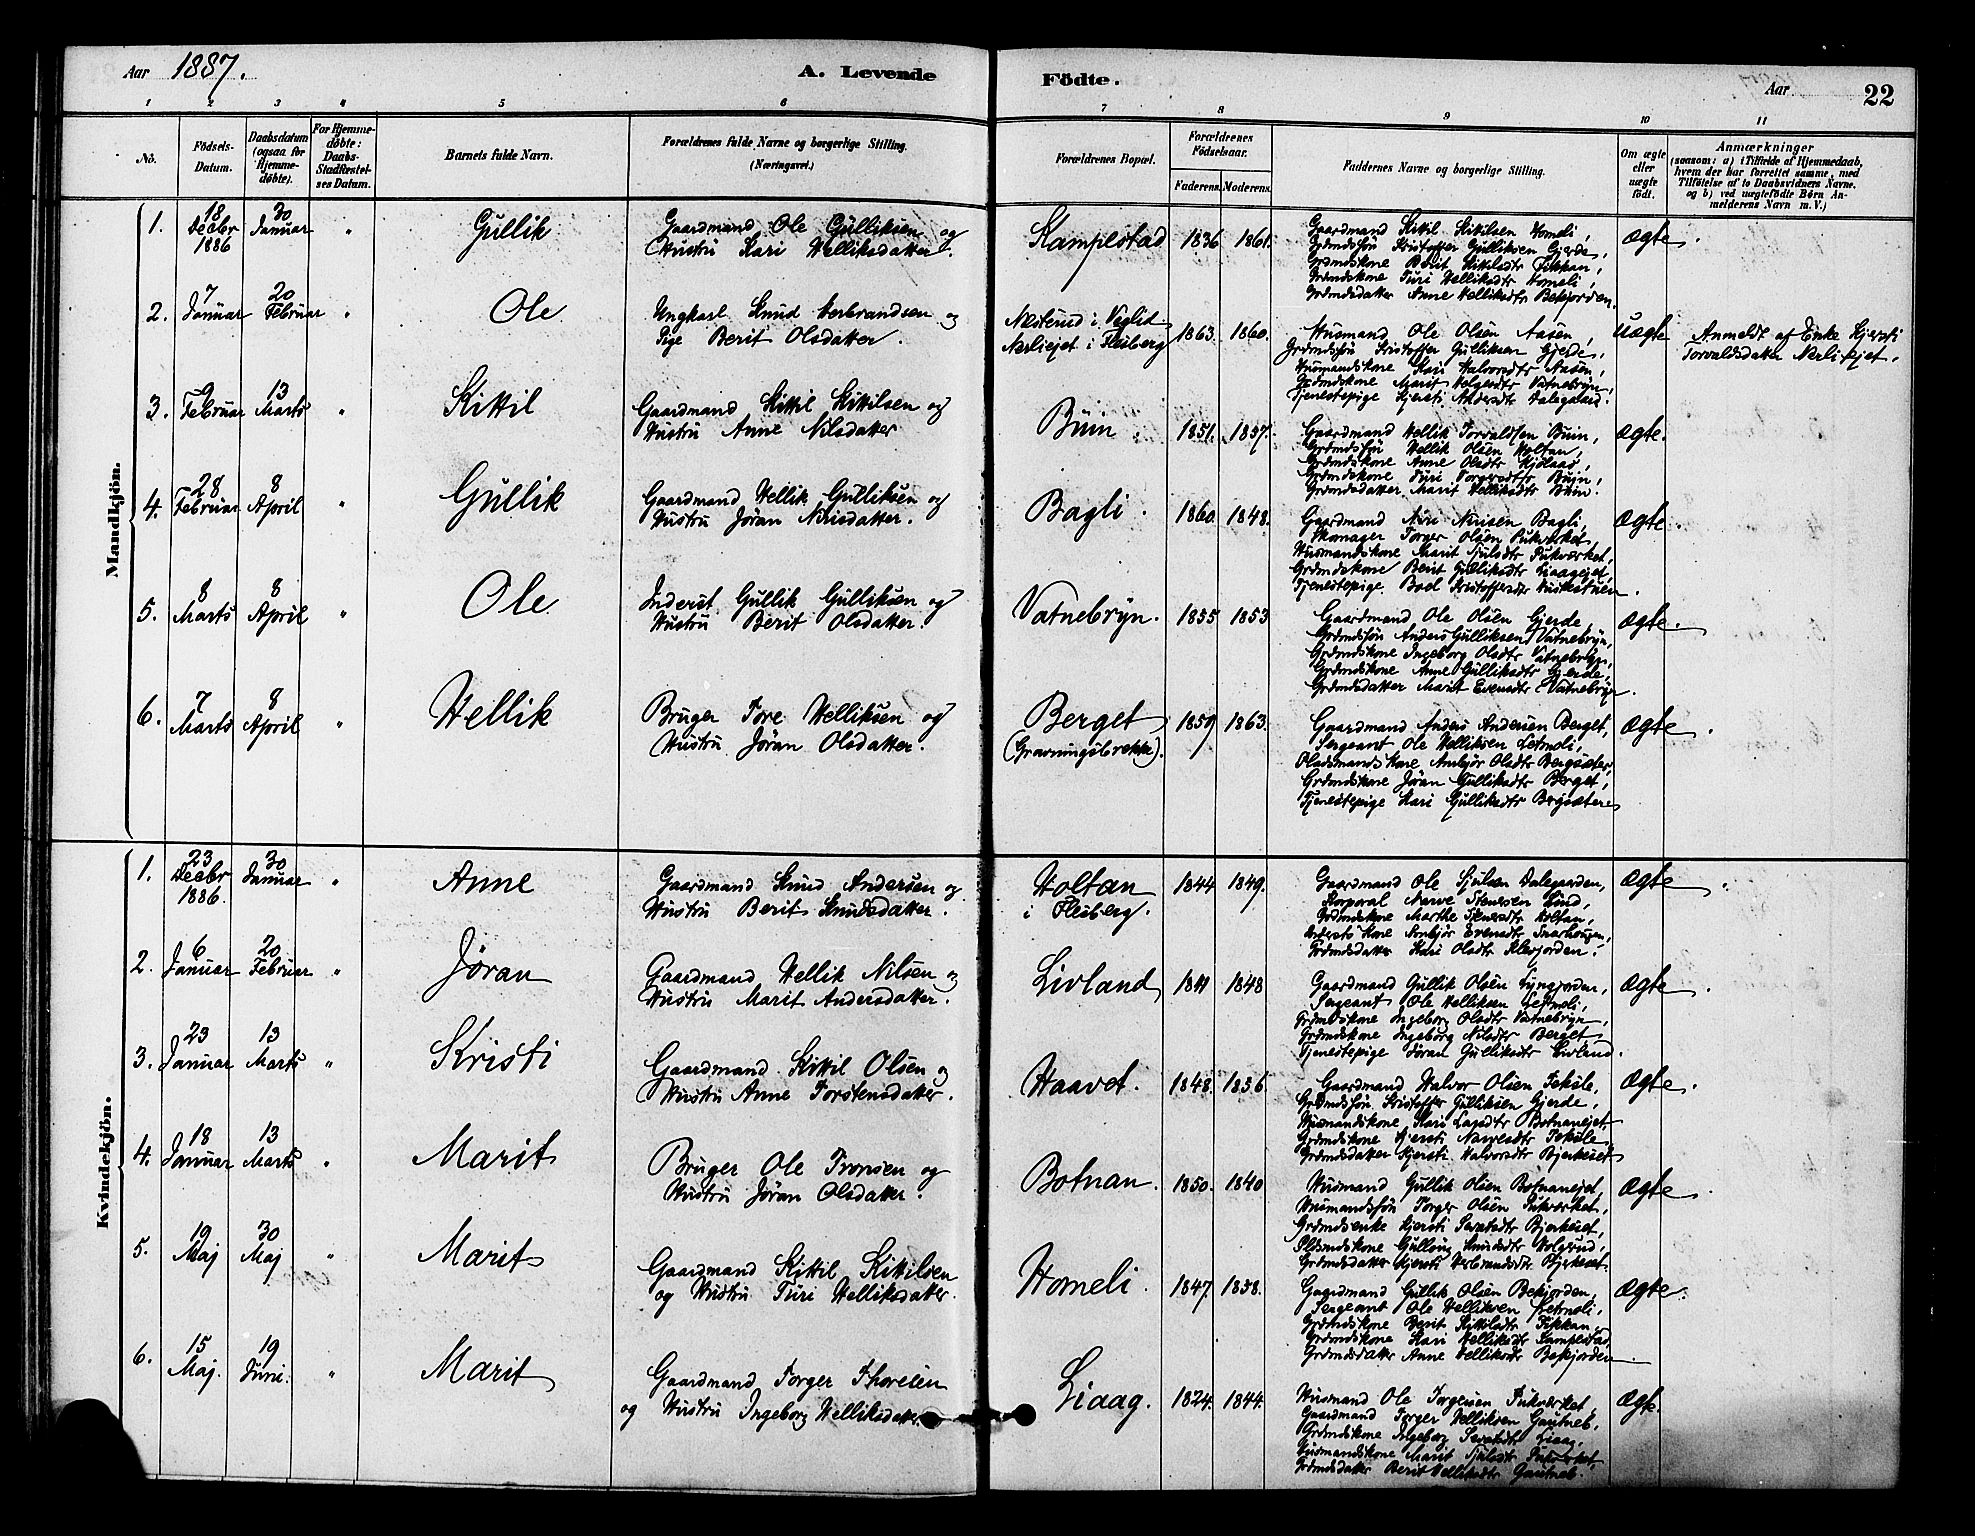 Aar 1887.
A. Levende Födte.
Aar
22
1 2 3 4 5 6 7 8 9 10 11
No.
Födsels-Datum.
Daabsdatum (ogsaa for Hjemme-døbte).
For Hjemme-døbte: Daabs-Stadfæstel-ses Datum.
Barnets fulde Navn.
Forældrenes fulde Navne og borgerlige Stilling.
(Næringsvei.)
Forældrenes Bopæl.
Forældrenes Födselsaar.
Faderens. Moderens.
Faddernes Navne og borgerlige Stilling.
Om ægte eller uægte født.
Anmærkninger
(saasom: a) i Tilfælde af Hjemmedaab,
hvem der har forrettet samme, med
Tilföielse af to Daabsvidners Navne.
og b) ved uægtefødte Børn An-
melderens Navn m. V.)
Mandkjön.
1. 18 Decbr 1886 30 Januar " Gullik
Gaardmand Ole Gulliksen og
Hustru Kari Helliksdatter.
Kamplestad 1836 1861.
Gaardmand Kittil Kittilsen Homeli,
Grdmdsøn Kristoffer Gulliksen Gjerde,
Grdmdskone Berit Kittilsdtr Fikkan,
Grdmdskone Turi Helliksdtr Homeli,
Grdmdsdatter Anne Helliksdtr Bekjorden.
ægte.
2. 7 Januar 20 Februar " Ole
Ungkarl Knud Herbrandsen og
Pige Berit Olsdatter.
Næsterud i Veglid
Nerliejet i Flesberg 1863. 1860.
Husmand Ole Olsen Aasen,
Grdmdsøn Kristoffer Gulliksen Gjerde,
Husmandskone Kari Halvorsdtr Aasen,
Grdmdskone Marit Helgesdtr Vatnebryn,
Tjenestepige Kjersti Andersdtr Dalegaard.
uægte
Anmeldt af Enke Kjersti
Torvaldsdatter Nerliejet.
3. 9 Februar 13 Marts " Kittil
Gaardmand Kittil Kittilsen og
Hustru Anne Nilsdatter
Buin. 1851. 1857.
Gaardmand Hellik Torvaldsen Buin,
Grdmdsøn Hellik Olsen Holtan,
Grdmdskone Anne Olsdtr
Grdmdskone Turi Torgersdtr Buin,
Grdmdsdatter Marit Helliksdtr Buin.
ægte.
4. 28 Februar 8 April " Gullik
Gaardmand Hellik Gulliksen og
Hustru Jøran Nirisdatter.
Bagli. 1860. 1848.
Gaardmand Niri Nirisen Bagli,
Skomager Torger Olsen Pukværket,
Husmandskone Marit Pukværket,
Grdmdskone Berit Gulliksdtr Liaagejet,
Tjenestepige Boel Kristoffersdtr
ægte
5. 8 Marts 8 April " Ole
Inderst Gullik Gulliksen og
Hustru Berit Olsdatter.
Vatnebryn. 1855 1853
Gaardmand Ole Olsen Gjerde,
Grdmdsøn Anders Gulliksen Vatnebryn,
Grdmdskone Ingeborg Olsdtr Vatnebryn,
Grdmdskone Anne Gulliksdtr Gjerde,
Grdmdsdatter Marit Evensdtr Vatnebryn.
ægte.
6. 7 Marts 8 April " Hellik
Bruger Tore Helliksen og
Hustru Jøran Olsdatter.
Berget
(Gravningsbrekke). 1859 1863.
Gaardmand Anders Andersen Berget,
Sergeant Ole Helliksen Letmoli,
Pladsmandskone Ambjør Olsdtr Bergsæter,
Grdmdskone Jøran Gulliksdtr Berget,
Tjenestepige Kari Gulliksdtr Bergsæter
ægte.
Kvindekjön.
1. 23 Decbr 1886. 30 Januar " Anne
Gaardmand Knud Andersen og
Hustru Berit Knudsdatter.
Holtan
i Flesberg. 1844 1849.
Gaardmand Ole Dalegaarden,
Korporal Narve Stenersen Lind,
Grdmdskone Marthe Stenersdtr Holtan,
Inderstskone Ambjør Evensdtr
Grdmdsdatter Kari Olsdtr
ægte.
2. 6 Januar 20 Februar " Jøran
Gaardmand Hellik Nilsen og
Hustru Marit Andersdatter.
Livland 1841 1848
Gaardmand Gullik Olsen
Sergeant Ole Helliksen Letmoli,
Grdmdskone Ingeborg Olsdtr Vatnebryn,
Grdmdskone Ingeborg Nilsdtr Berget,
Tjenestepige Jøran Gulliksdtr Livland.
ægte.
3. 23 Januar 13 Marts " Kristi
Gaardmand Kittil Olsen og
Hustru Anne Torstensdatter.
Haavet. 1848. 1856
Gaardmand Halvor Olsen Tekslé,
Grdmdsøn Kristoffer Gulliksen Gjerde,
Husmandskone Kari Larsdtr Botnanejet,
Grdmdskone Kjersti Narvesdtr Tekslé,
Grdmdsdatter Kjersti Halvorsdtr Bjerkeset
ægte.
4. 18 Januar 13 Marts " Marit
Bruger Ole Tronsen og
Hustru Jøran Olsdatter.
Botnan. 1850. 1840
Husmand Gullik Olsen Botnanejet,
Husmandsøn Torger Olsen Pukværket,
Grdmdsenke Kjersti Bjerkeset,
Pldsmdskone Gullaug Knudsdtr
Grdmdsdatter Kjersti Herbrandsdtr Bjerkeset.
ægte.
5. 19 Maj 30 Maj " Marit
Gaardmand Kittil Kittilsen
og Hustru Turi Helliksdatter.
Homeli. 1847. 1858.
Gaardmand Gullik Olsen Bekjorden,
Sergeant Ole Helliksen Letmoli,
Grdmdskone Berit Kittilsdtr Fikkan,
Grdmdskone Kari Helliksdtr Kamplestad
Grdmdsdatter Anne Helliksdtr Bekjorden.
ægte.
6. 15 Maj. 19 Juni. " Marit
Gaardmand Torger Thoresen
og Hustru Ingeborg Helliksdatter.
Liaag. 1824. 1844.
Husmand Ole Torgersen Pukværket,
Gaardmand Torger Helliksen Gautneb,
Grdmdskone Ingeborg Liaag,
Husmandskone Marit Pukværket,
Grdmdsdatter Berit Helliksdtr Gautneb.
ægte.